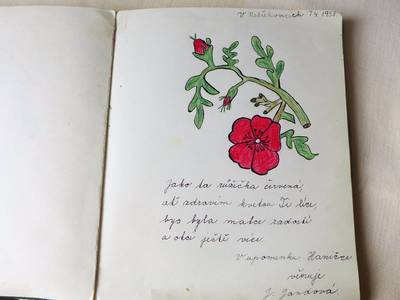 V 7.4. 1951
Jako ta růžička červená,
ať zdravím kvetou Ti líce,
bys byla matce radostí
a otci ještě více.
V upomínku Haničce
věnuje
J. Jandová.